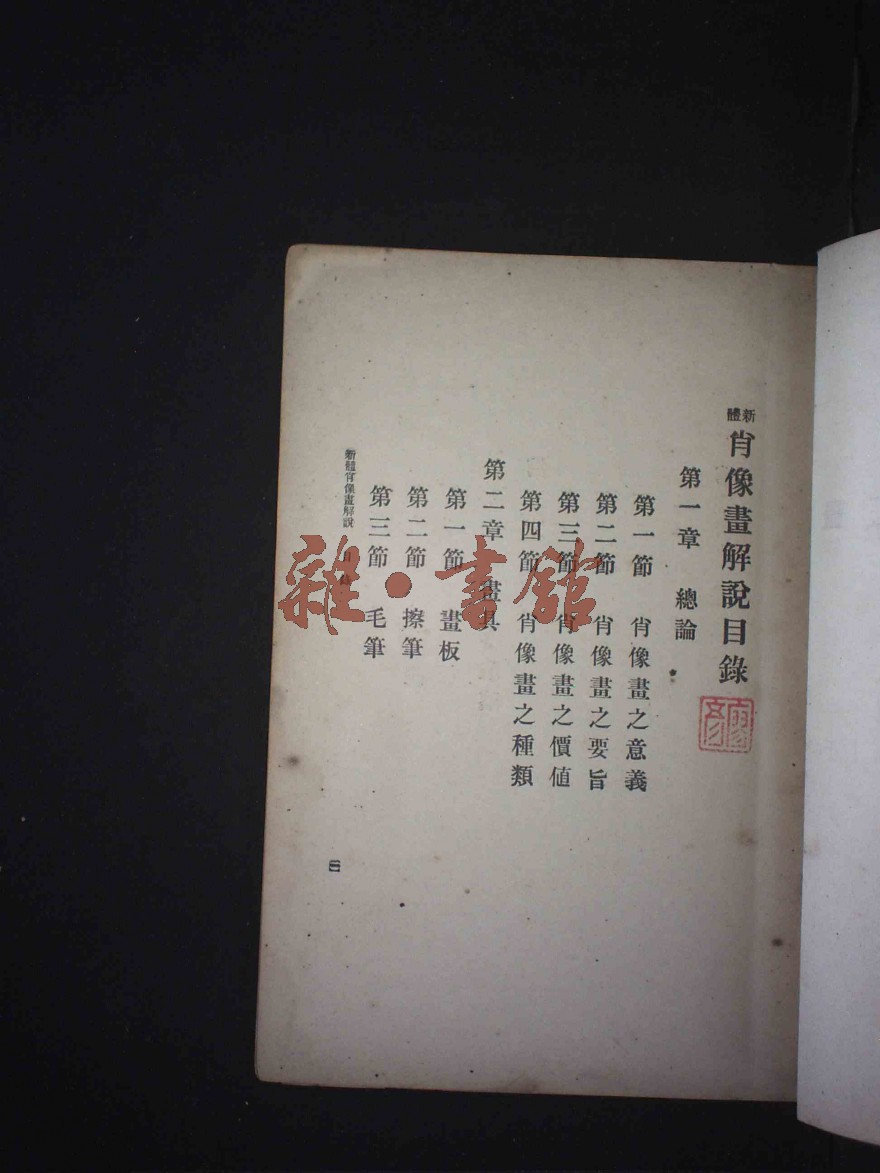 新體肖像畫解說目錄
第一章 總論
第一節 肖像畫之意義
第二節 肖像畫之要旨
第三節 肖像畫之價值
第四節 肖像畫之種類
第二章 畫具
第一節 畫板
第二節 擦筆
第三節 毛筆
新體肖像畫解說 目錄
雜·書館